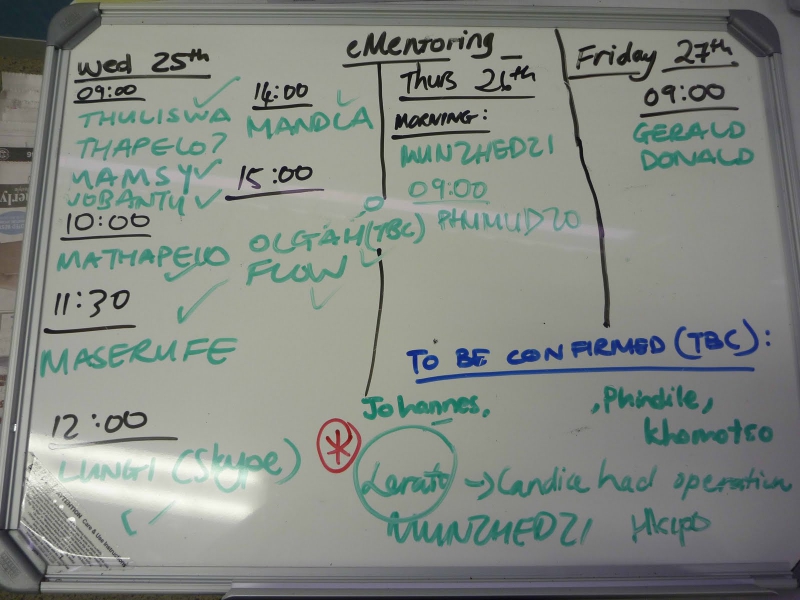 eMentoring
Wed 25th
09:00
THULISWA
THAPELO?
MAMSY
JOBANTU
10:00
MATHAPELO
11:30
MASERUFE
12:00
LUNGI (Skype)
14:00
MANDLA
15:00
OLGTAH (TBC)
FLOW
Thurs 26th
MORNING:
MUNZHEDZI
09:00
PHUMUDZO
Friday 27th
09:00
GERALD
DONALD
TO BE CONFIRMED (TBC):
Johannes, , Phindile,
Khomotso
Lerato → Candice had operation
MUNZHEDZI
ATTENTION Care & Use Instructions